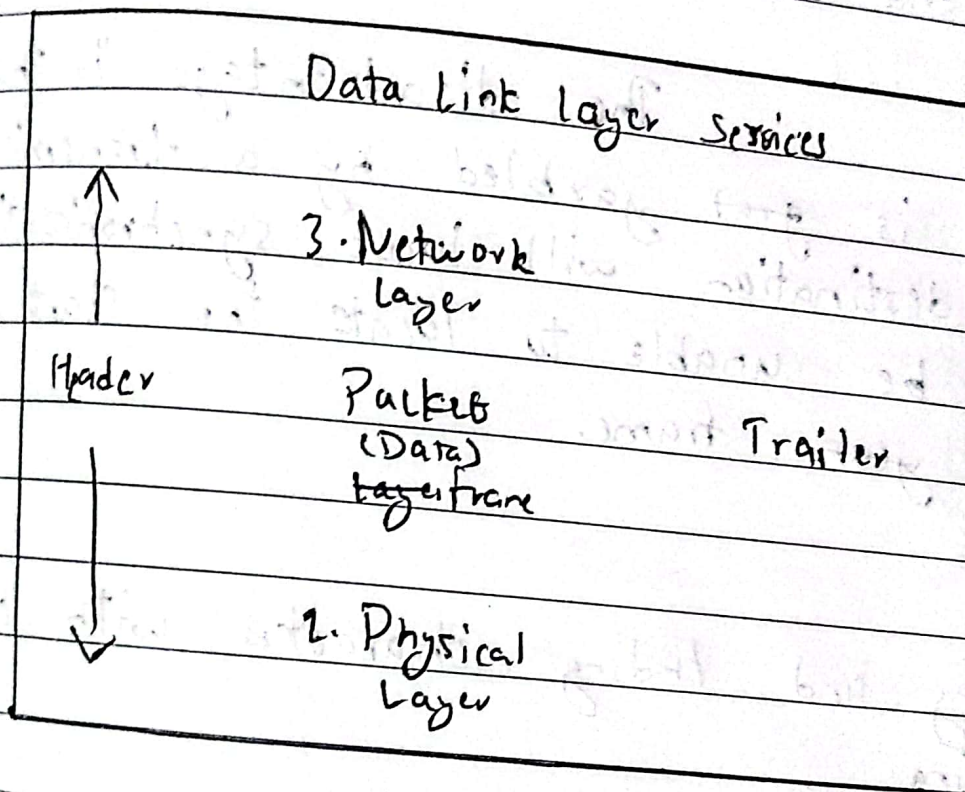 Data Link Layer Services
3. Network
Layer
Header Packet Trailer
(Data)
Layer frame
1. Physical
Layer